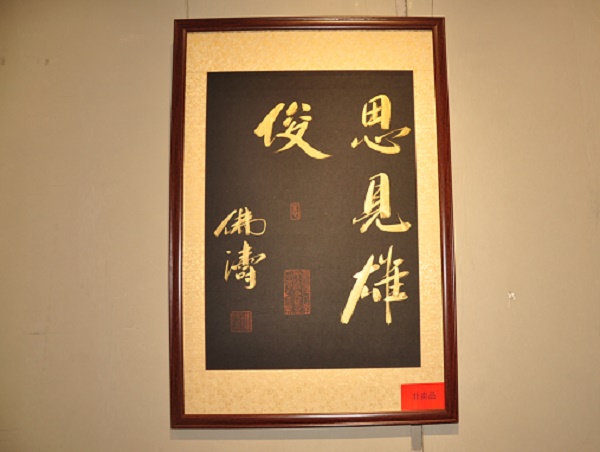 思見雄
俊
佛濤